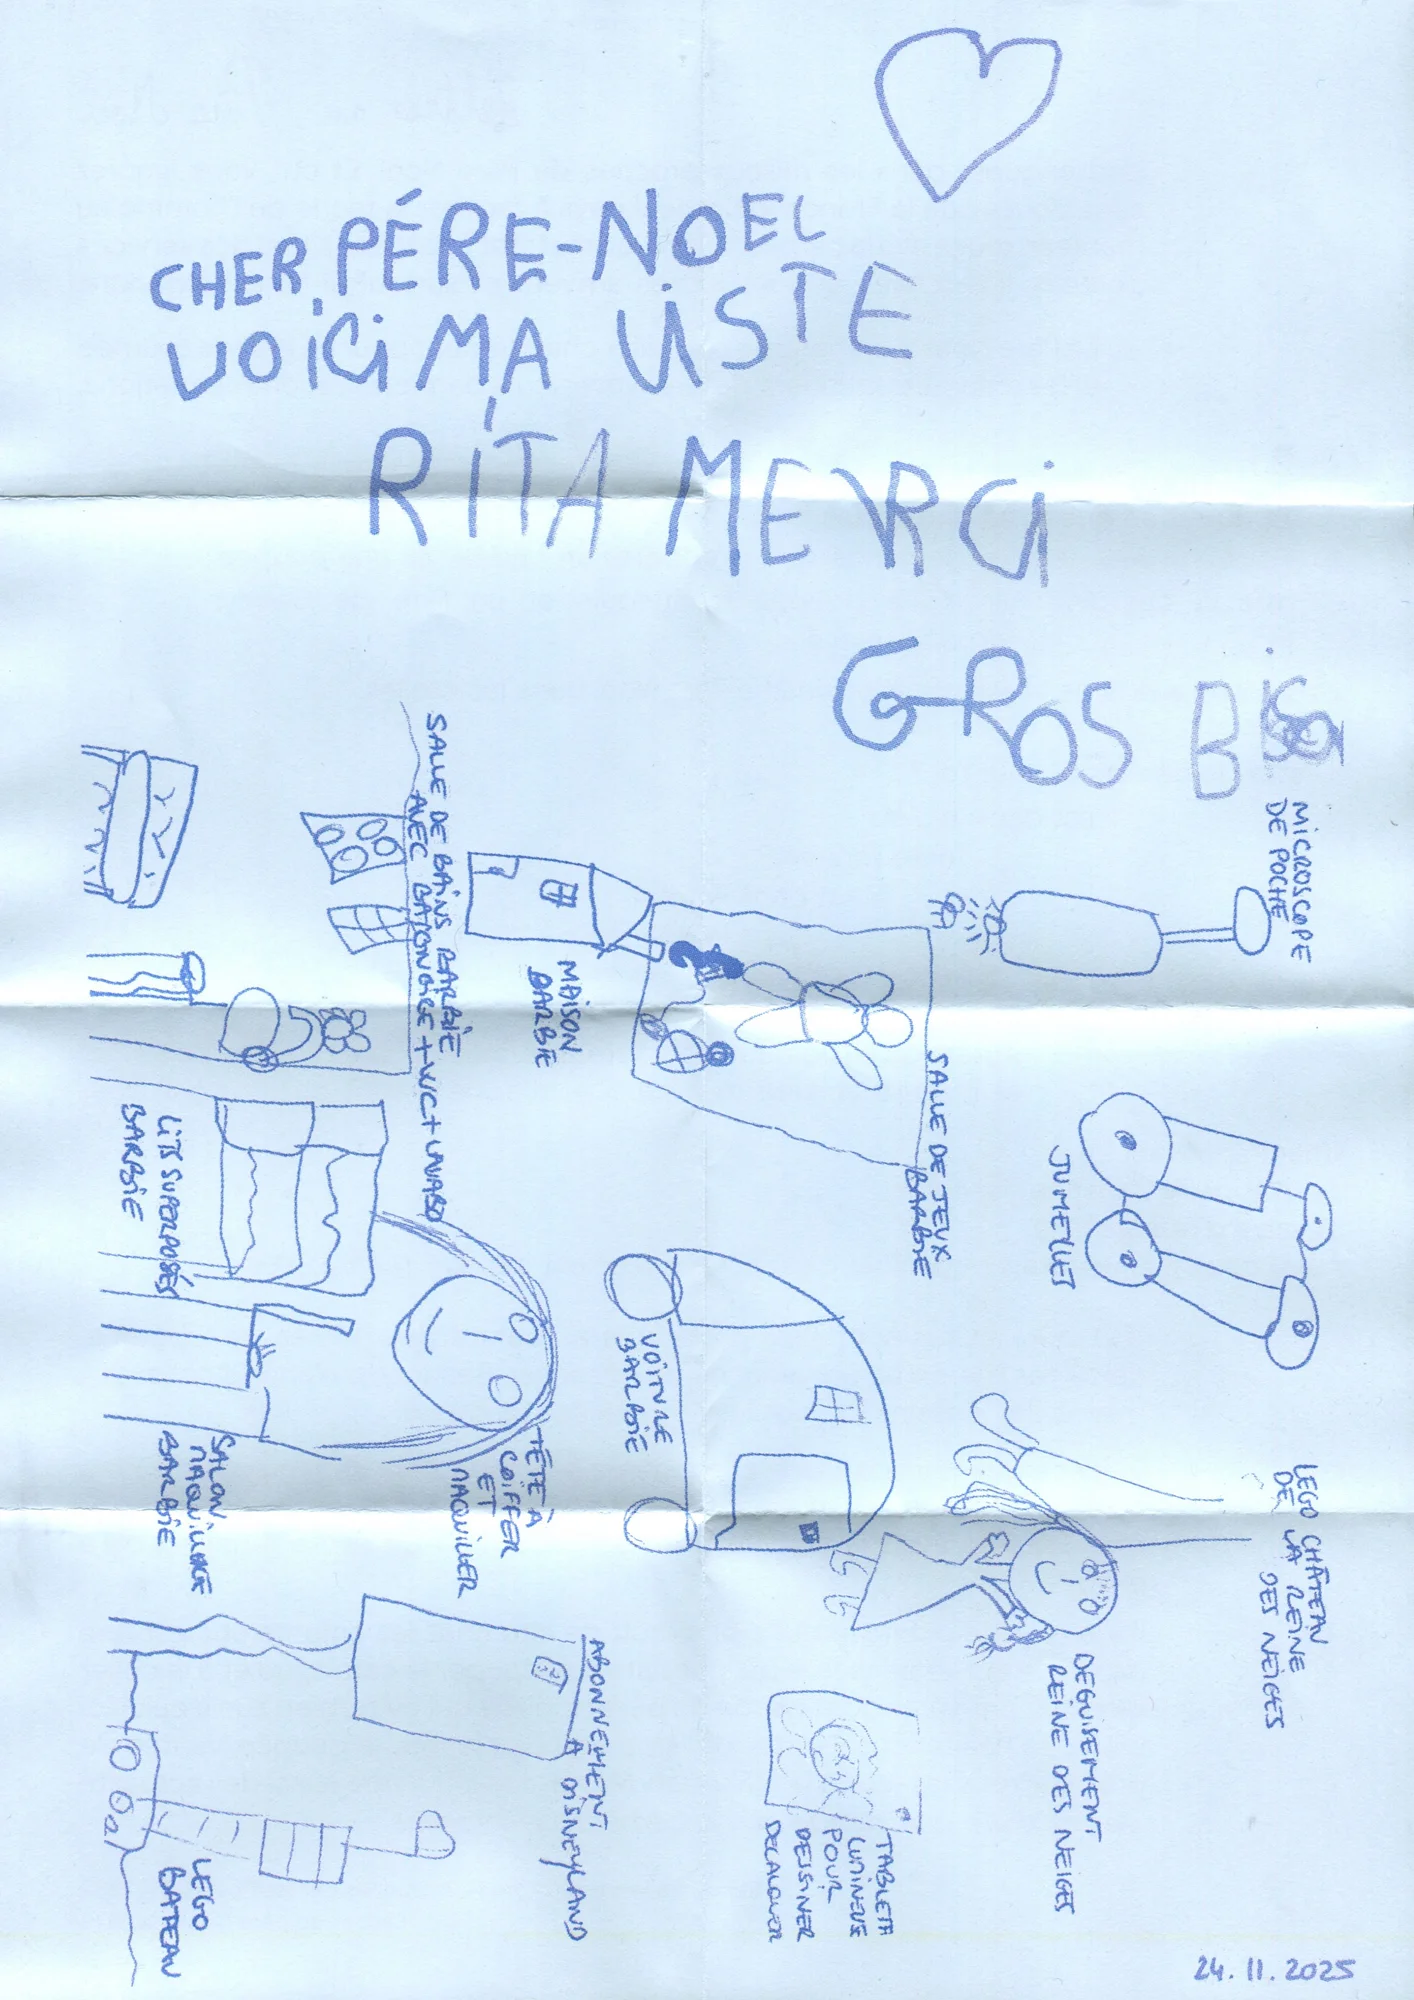 CHER PÉRE-NOEL
VOICI MA LISTE
RITA MERCI
GROS BISO
MICROSCOPE
DE POCHE
JUMELLES
LEGO CHÂTEAU
DE LA REINE
DES NEIGES
SALLE DE JEUX
BARBIE
DEGUISEMENT
REINE DES NEIGES
MAISON
BARBIE
VOITURE
BARBIE
TABLETTE
LUMINEUSE
POUR
DESSINER
DECALQUER
SALLE DE BAINS BARBIE
AVEC BAIGNOIRE + WC + LAVABO
TÊTE À
COIFFER
ET
MAQUILLER
ABONNEMENT
A DISNEYLAND
LITS SUPERPOSÉS
BARBIE
SALON
MAQUILLAGE
BARBIE
LEGO
BATEAU
24.11.2025